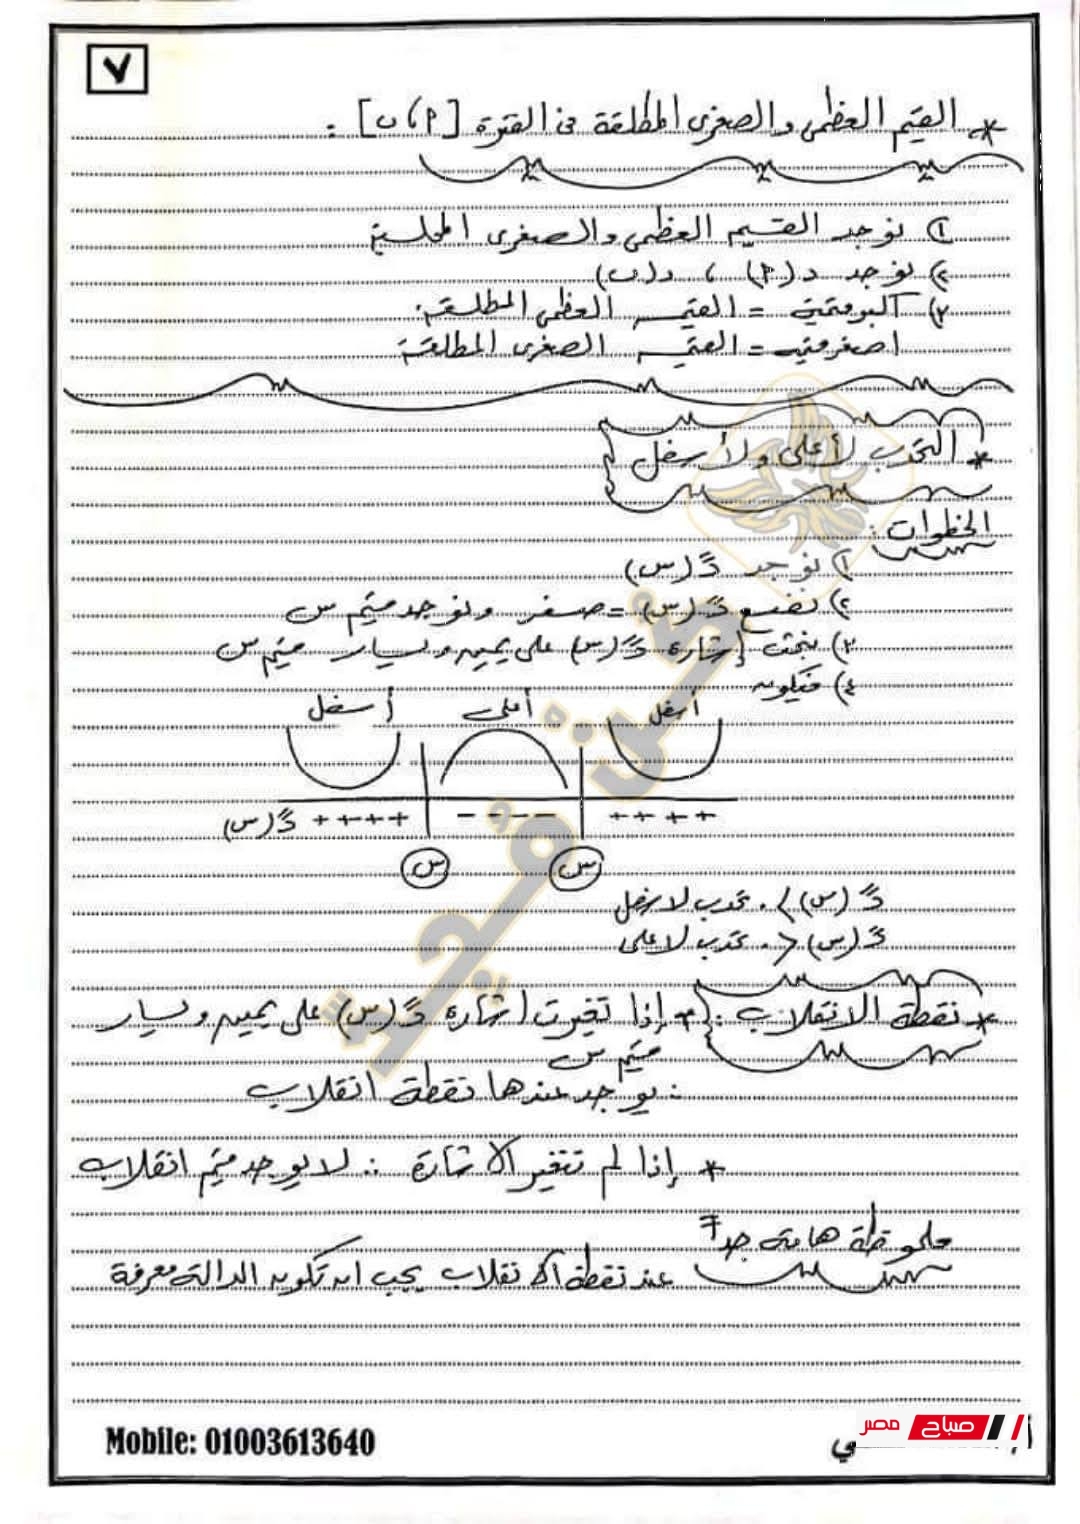 ٧
* القيم العظمى والصغرى المطلقة فى الفترة [ ٩ ، ب ] :
١) نوجد القيم العظمى والصغرى المحلية
٢) نوجد د(٩) ، د(ب)
٣) أكبر قيمة = القيمة العظمى المطلقة
أصغر قيمة = القيمة الصغرى المطلقة
* التحدب لأعلى ولأسفل
الخطوات :
١) نوجد دً(س)
٢) نضع دً(س) = صفر ونوجد قيم س
٣) نبحث إشارة دً(س) على يمين ويسار قيم س
٤) فيكون
أسفل أعلى أسفل
دً(س) ++++ ---- ++++
س س
دً(س) > ٠ تحدب لأسفل
دً(س) < ٠ تحدب لأعلى
* نقطة الانقلاب : * إذا تغيرت إشارة دً(س) على يمين ويسار
قيم س
∴ يوجد عندها نقطة انقلاب
* إذا لم تتغير الاشارة ∴ لا يوجد قيم انقلاب
ملحوظة هامة جداً
عند نقطة الانقلاب يجب ان تكون الدالة معرفة
Mobile: 01003613640
صباح مصر